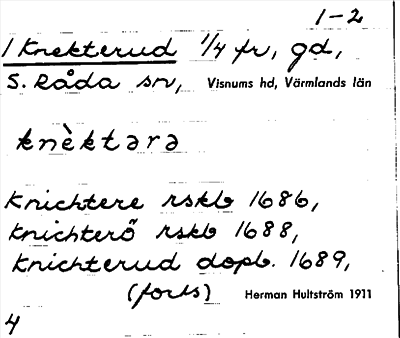 1-2
1 Knekterud 1/4 fr, gd,
S. Råda sn, Visnums hd, Värmlands län
knèktərə
Knichtere rskb 1686,
Knichterö rskb 1688,
Knichterud dopb. 1689,
(forts) Herman Hultström 1911
4